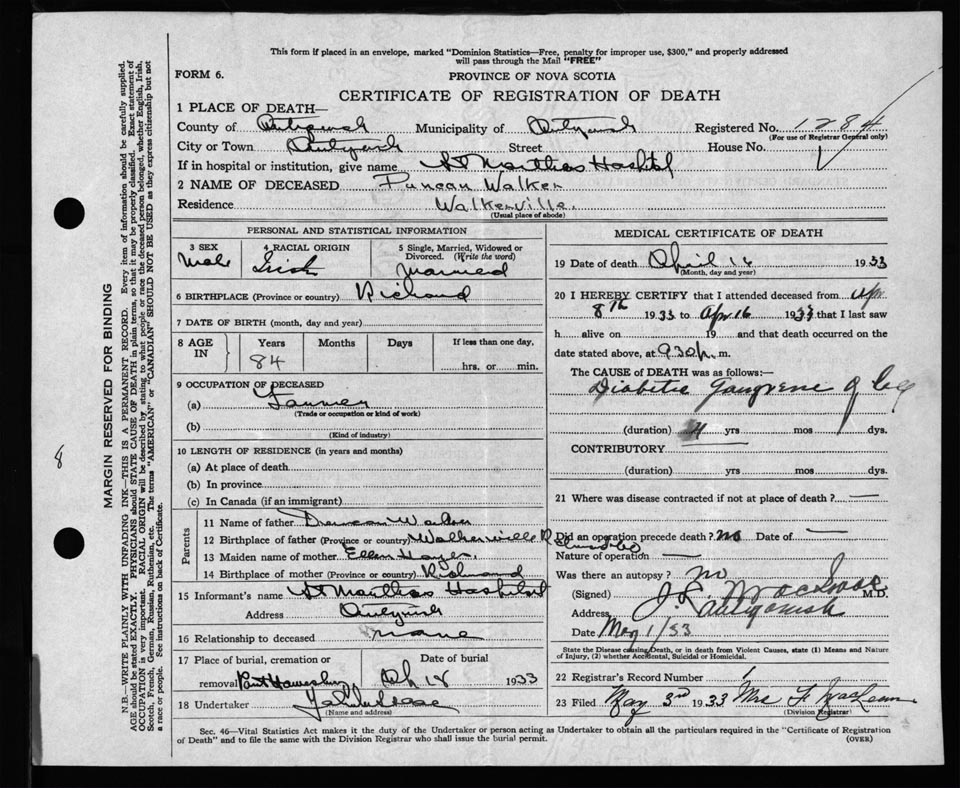 This form if placed in an envelope, marked "Dominion Statistics—Free, penalty for improper use, $300," and properly addressed
will pass through the Mail "FREE"
FORM 6.
PROVINCE OF NOVA SCOTIA
CERTIFICATE OF REGISTRATION OF DEATH
1 PLACE OF DEATH—
County of Antigonish Municipality of Antigonish Registered No. 1284
(For use of Registrar General only)
City or Town Antigonish Street House No.
If in hospital or institution, give name St Marthas Hospital
2 NAME OF DECEASED Duncan Walker
Residence Walkerville
(Usual place of abode)
PERSONAL AND STATISTICAL INFORMATION
3 SEX Male
4 RACIAL ORIGIN Irish
5 Single, Married, Widowed or Divorced. (Write the word) Married
6 BIRTHPLACE (Province or country) Richmond
7 DATE OF BIRTH (month, day and year)
8 AGE IN Years 84 Months Days If less than one day, hrs. or min.
9 OCCUPATION OF DECEASED
(a) Farmer
(Trade or occupation or kind of work)
(b)
(Kind of industry)
10 LENGTH OF RESIDENCE (in years and months)
(a) At place of death
(b) In province
(c) In Canada (if an immigrant)
Parents
11 Name of father Duncan Walker
12 Birthplace of father (Province or country) Walkerville Richmond Co
13 Maiden name of mother Ellen Hayes
14 Birthplace of mother (Province or country) Richmond
15 Informant's name St Marthas Hospital
Address Antigonish
16 Relationship to deceased None
17 Place of burial, cremation or removal Port Hawkesbury Date of burial 18 1933
18 Undertaker
(Name and address)
MEDICAL CERTIFICATE OF DEATH
19 Date of death April 16 1933
(Month, day and year)
20 I HEREBY CERTIFY that I attended deceased from Apr
8th 1933 to Apr 16 1933 that I last saw
h alive on 19 and that death occurred on
date stated above, at 9.30 p. m.
The CAUSE of DEATH was as follows:
Diabetic Gangrene of leg
(duration) yrs mos dys.
CONTRIBUTORY
(duration) yrs mos dys.
21 Where was disease contracted if not at place of death? —
Did an operation precede death? no Date of —
Nature of operation —
Was there an autopsy? no
(Signed) J. M.D.
Address Antigonish
Date May 1/33
State the Disease causing Death, or in death from Violent Causes, state (1) Means and Nature
of Injury, (2) whether Accidental, Suicidal or Homicidal.
22 Registrar's Record Number 1
23 Filed May 3rd 1933 Mrs F MacLean
(Division Registrar)
Sec. 46—Vital Statistics Act makes it the duty of the Undertaker or person acting as Undertaker to obtain all the particulars required in the "Certificate of Registration
of Death" and to file the same with the Division Registrar who shall issue the burial permit.
(OVER)
MARGIN RESERVED FOR BINDING
N.B.—WRITE PLAINLY WITH UNFADING INK—THIS IS A PERMANENT RECORD. Every item of information should be carefully supplied.
AGE should be stated EXACTLY. PHYSICIANS should STATE CAUSE OF DEATH in plain terms, so that it may be properly classified. Exact statement of
OCCUPATION is very important. RACIAL ORIGIN will be described by stating to what people or race the deceased person belonged, whether English, Irish,
Scotch, French, German, Russian, Ruthenian, etc. The terms "AMERICAN" or "CANADIAN" SHOULD NOT BE USED as they express citizenship but not
a race or people. See instructions on back of Certificate.
8